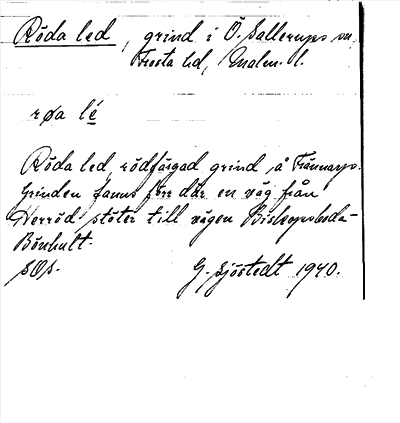 Röda led, grind i Ö. Sallerups sn,
Frosta hd, Malm. l.
røa lé
Röda led, rödfärgad grind å Trännarp.
Grinden fanns förr där en väg från
Herröd stöter till vägen Biskopsboda-
Bönhult.
SOS.
G. Sjöstedt 1940.